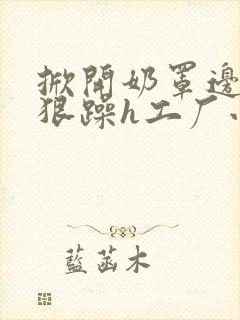 掀開奶罩邊
狠躁h工厂
藍菡木